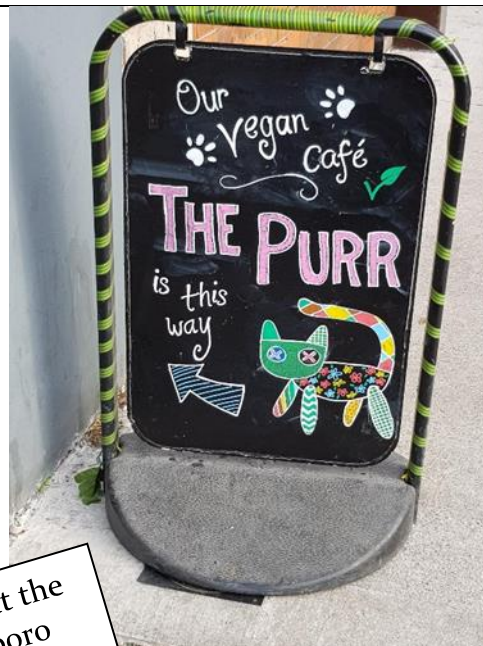 Our
vegan
café
THE PURR
is this
way
t the
oro